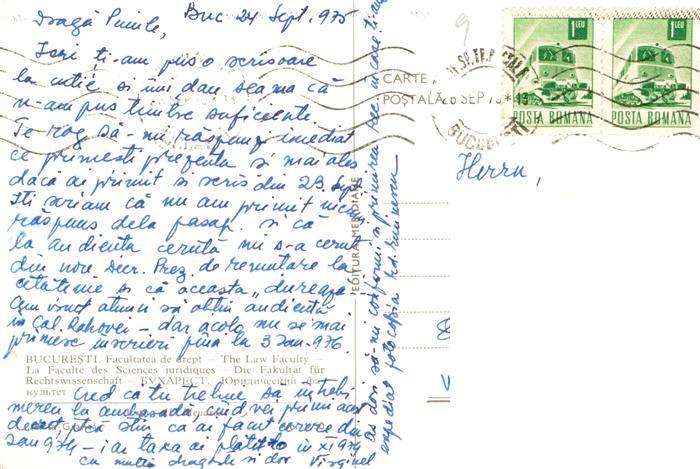 Buc 24 Sept. 975
Dragă Puiule,
Ieri ți-am pus o scrisoare
la cutie și îmi dau seama că
n-am pus timbre suficente.
Te rog să-mi răspunzi imediat
ce primești prezenta și mai ales
dacă ai primit și scris din 23. Sept
Îți scriam că nu am primit niciun
răspuns dela pasap. și că
la audiența cerută mi s-a cerut
din nou Decr. Prez. de renunțare la
cetățenie și că aceasta „durează
Am vrut atunci să obțin audiență
în Cal. Rahovei - dar acolo nu se mai
primesc înscrieri pînă la 3 Ian. 976.
BUCUREȘTI. Facultatea de drept — The Law Faculty —
La Faculté des Sciences juridiques — Die Fakultät für
Rechtswissenschaft — БУХАРЕСТ. Юридический фа-
культет
Cred că tu trebue să întrebi
mereu la ambasadă cînd vei primi
că ai făcut cerere din
Ian 974 - iar taxa ai plătit-o în XI 974
cu multă dragoste și dor Virginel
EDITURA MERIDIANE
aș dori să-mi confirmi și primirea
expediat fotocopia
CARTE
POȘTALĂ
SEP 75
BUCUREȘTI
1 LEU
POSTA ROMANA
1 LEU
POSTA ROMANA
Herrn,